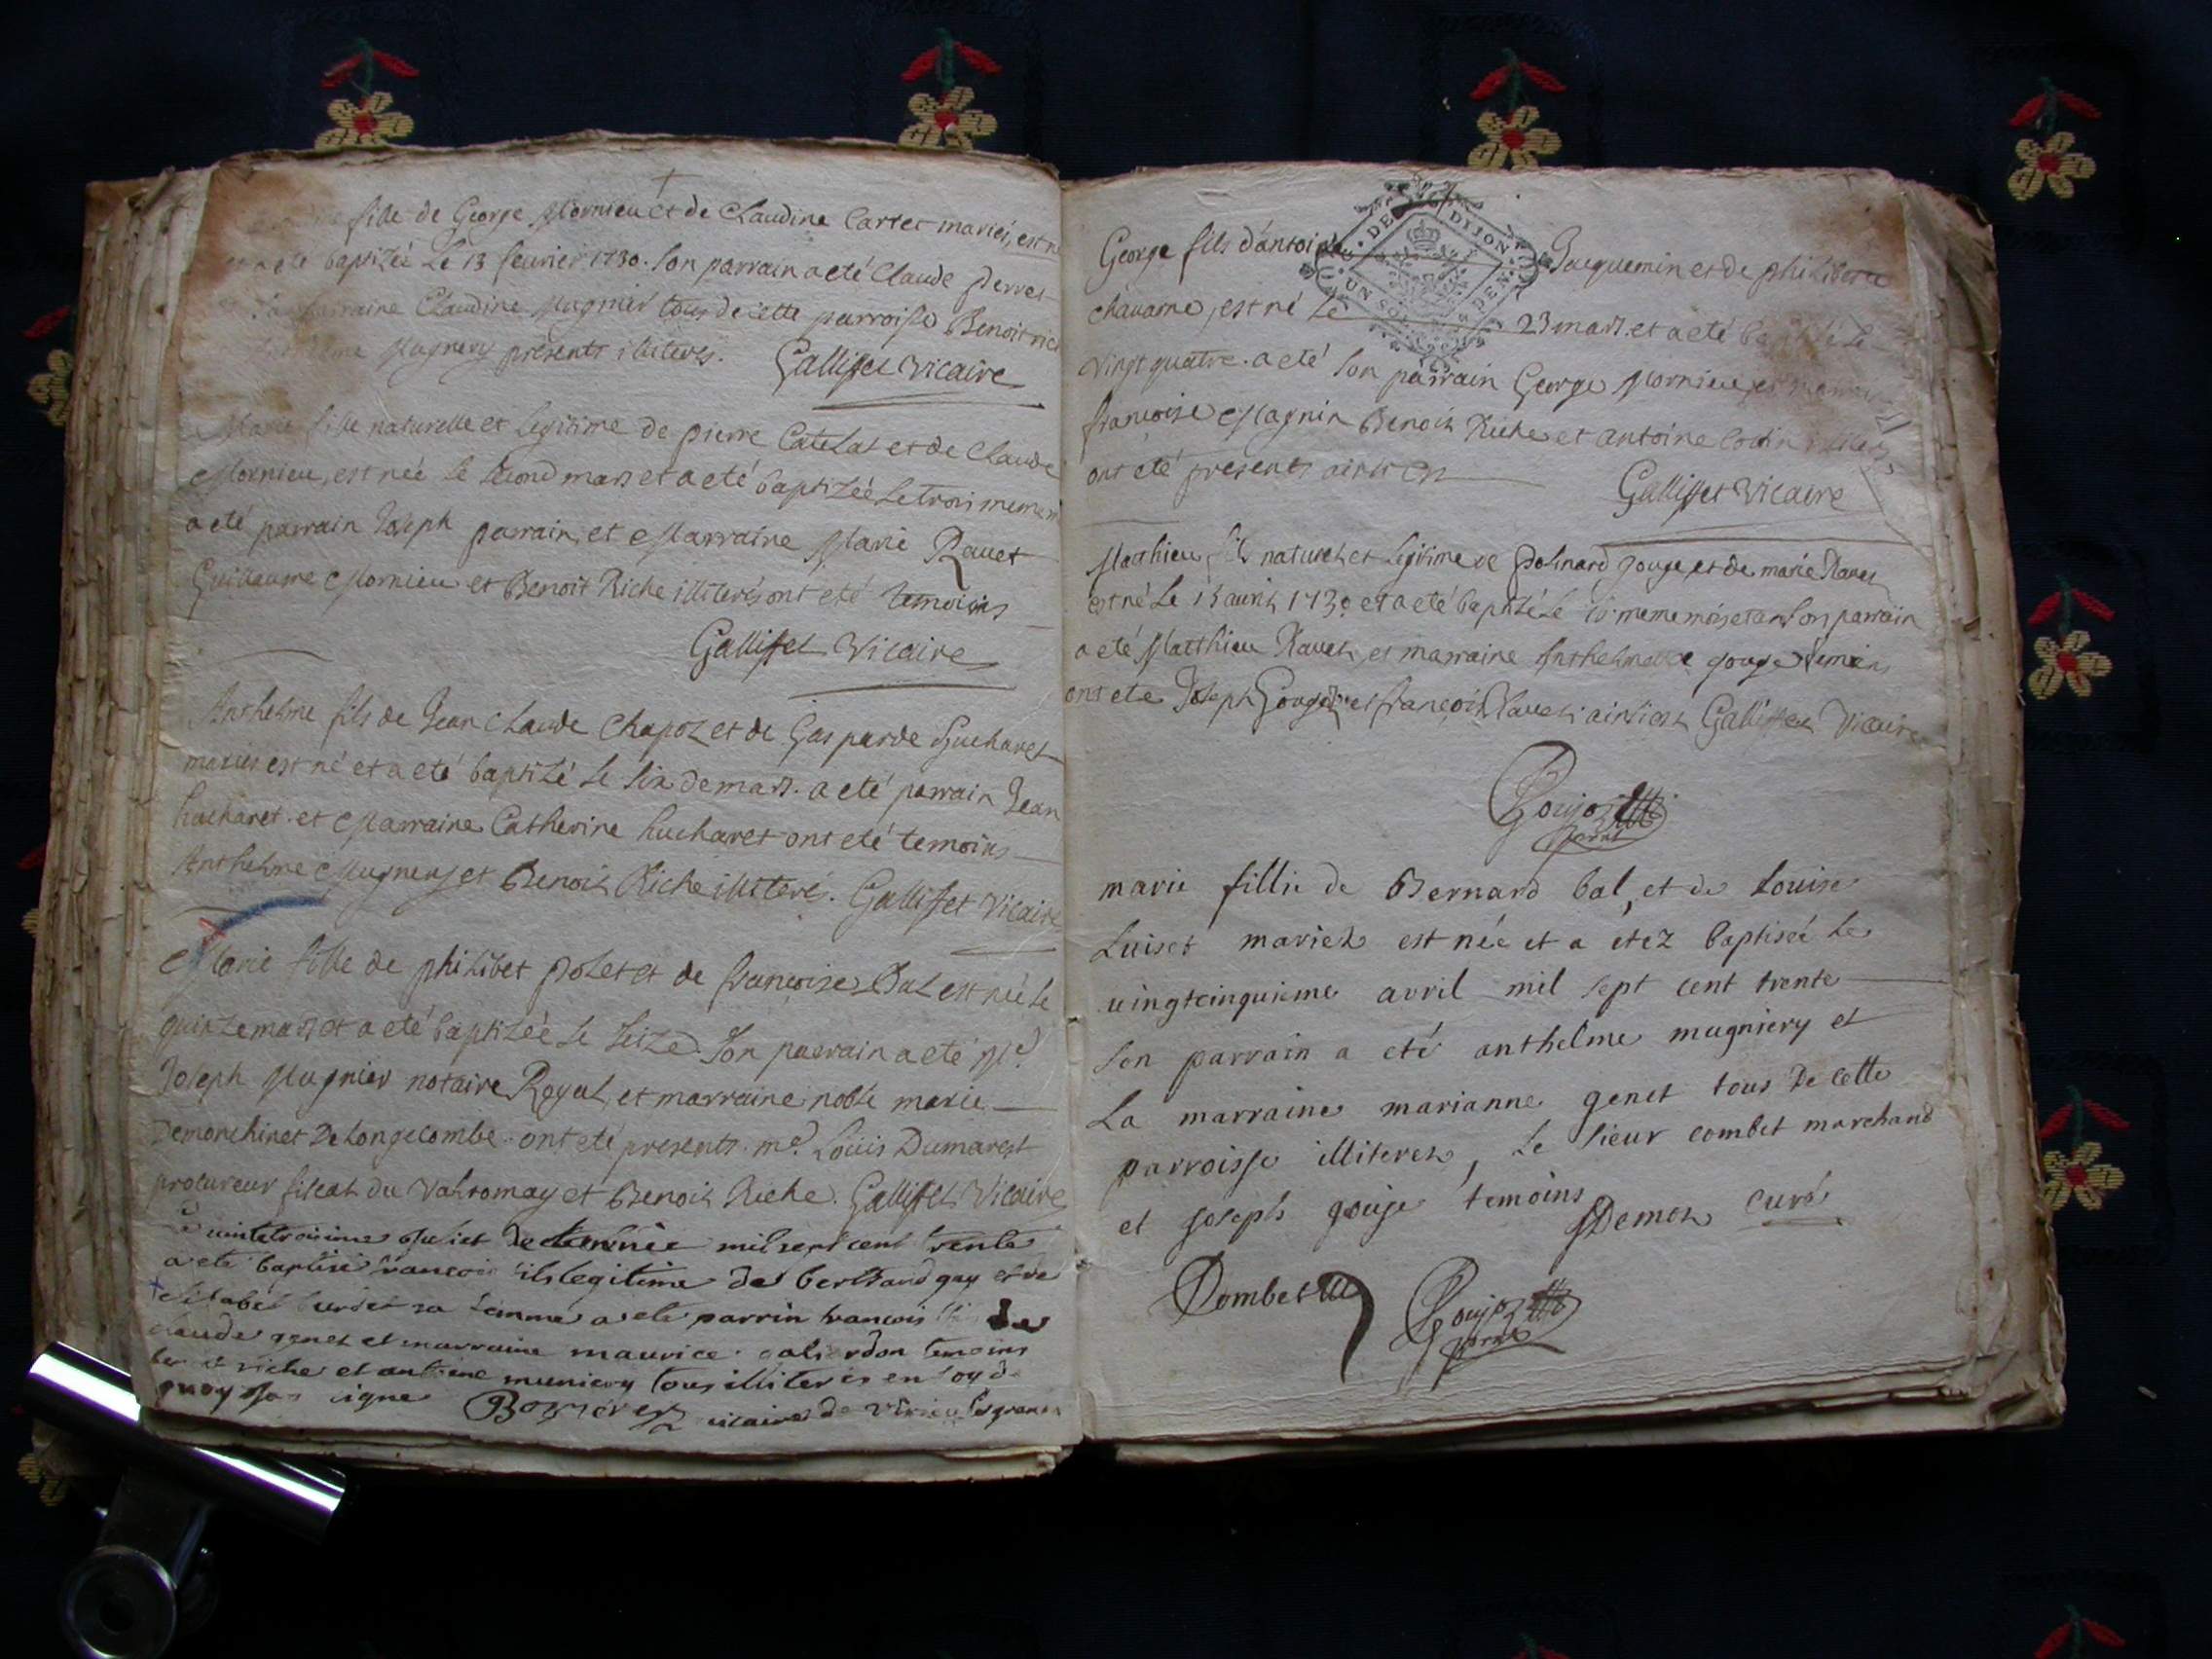 fille de George Mornieu et de Claudine Cartet mariés, est né
et a eté baptizée Le 13 feurier 1730. Son parrain a eté Claude Perret
marraine Claudine Mugnier tous de cette parroisse Benoit
Mugnery présents illiterés. Gallisset Vicaire
Marie fille naturelle et Legitime de pierre Catelat et de Claude
Mornieu, est née le second mars et a eté baptizée Le trois meme
a eté parrain Joseph parrain, et Marraine Marie Rauet
Guillaume Mornieu et Benoit Riche illiterés ont eté temoins
Gallisset Vicaire
Anthelme fils de Jean Claude Chapot et de Gasparde Hucharet
mariés est né et a eté baptizé Le six de mars. a eté parrain Jean
hucharet. et Marraine Catherine hucharet ont eté temoins
Anthelme Mugnery et Benoit Riche illiterés. Gallisset Vicaire
Marie fille de philibet polet et de françoise Bal est née le
quinze mars et a eté baptizée Le seize. Son parrain a eté Me.
Joseph Mugnier notaire Royal, et marraine noble marie
Demorchinet De Longecombe. ont eté presents. me. Louis Dumarest
procureur fiscal du Valromay et Benoit Riche. Gallisset Vicaire
Le uintetroisime Juliet de lannée mil sept cent trente
a ete baptisé francois fils legitime de bertrand guy et de
elisabet burdet sa femme a ete parrin francois fils de
claude genet et marraine maurice temoins
riche et antoine muniery tous illiterés en foy de
quoy jay signe vicaire de virieu le grand
DE DIJON
UN SOL DEN
George fils d'antoine Jacquemin et de philiberte
chauane, est né Le 23 mars. et a eté baptizé Le
vingt quatre. a eté son parrain George Mornieu, et marraine
françoise Magnin Benoit Riche et antoine Codin
ont eté presents ainsi est
Gallisset Vicaire
Matthieu fils naturel et Legitime de Polinard gouge, et de marie Rauet
est né Le 15 auril 1730 et a eté baptizé Le 16 meme mois et an son parrain
a eté Matthieu Rauet, et marraine Anthelmette gouge temoins
ont eté Joseph Gouge et françois Rauet. ainsi est Gallisset Vicaire
Goujo
marie fillie de Bernard bal, et de Louise
Luiset mariez est née et a étez baptisée Le
uingtcinquieme avril mil sept cent trente
son parrain a eté anthelme mugniery et
La marraine marianne genet tous De cette
parroisse illiterez, Le sieur combet marchand
et joseph gouje temoins Demoz curé
Combet Goujo